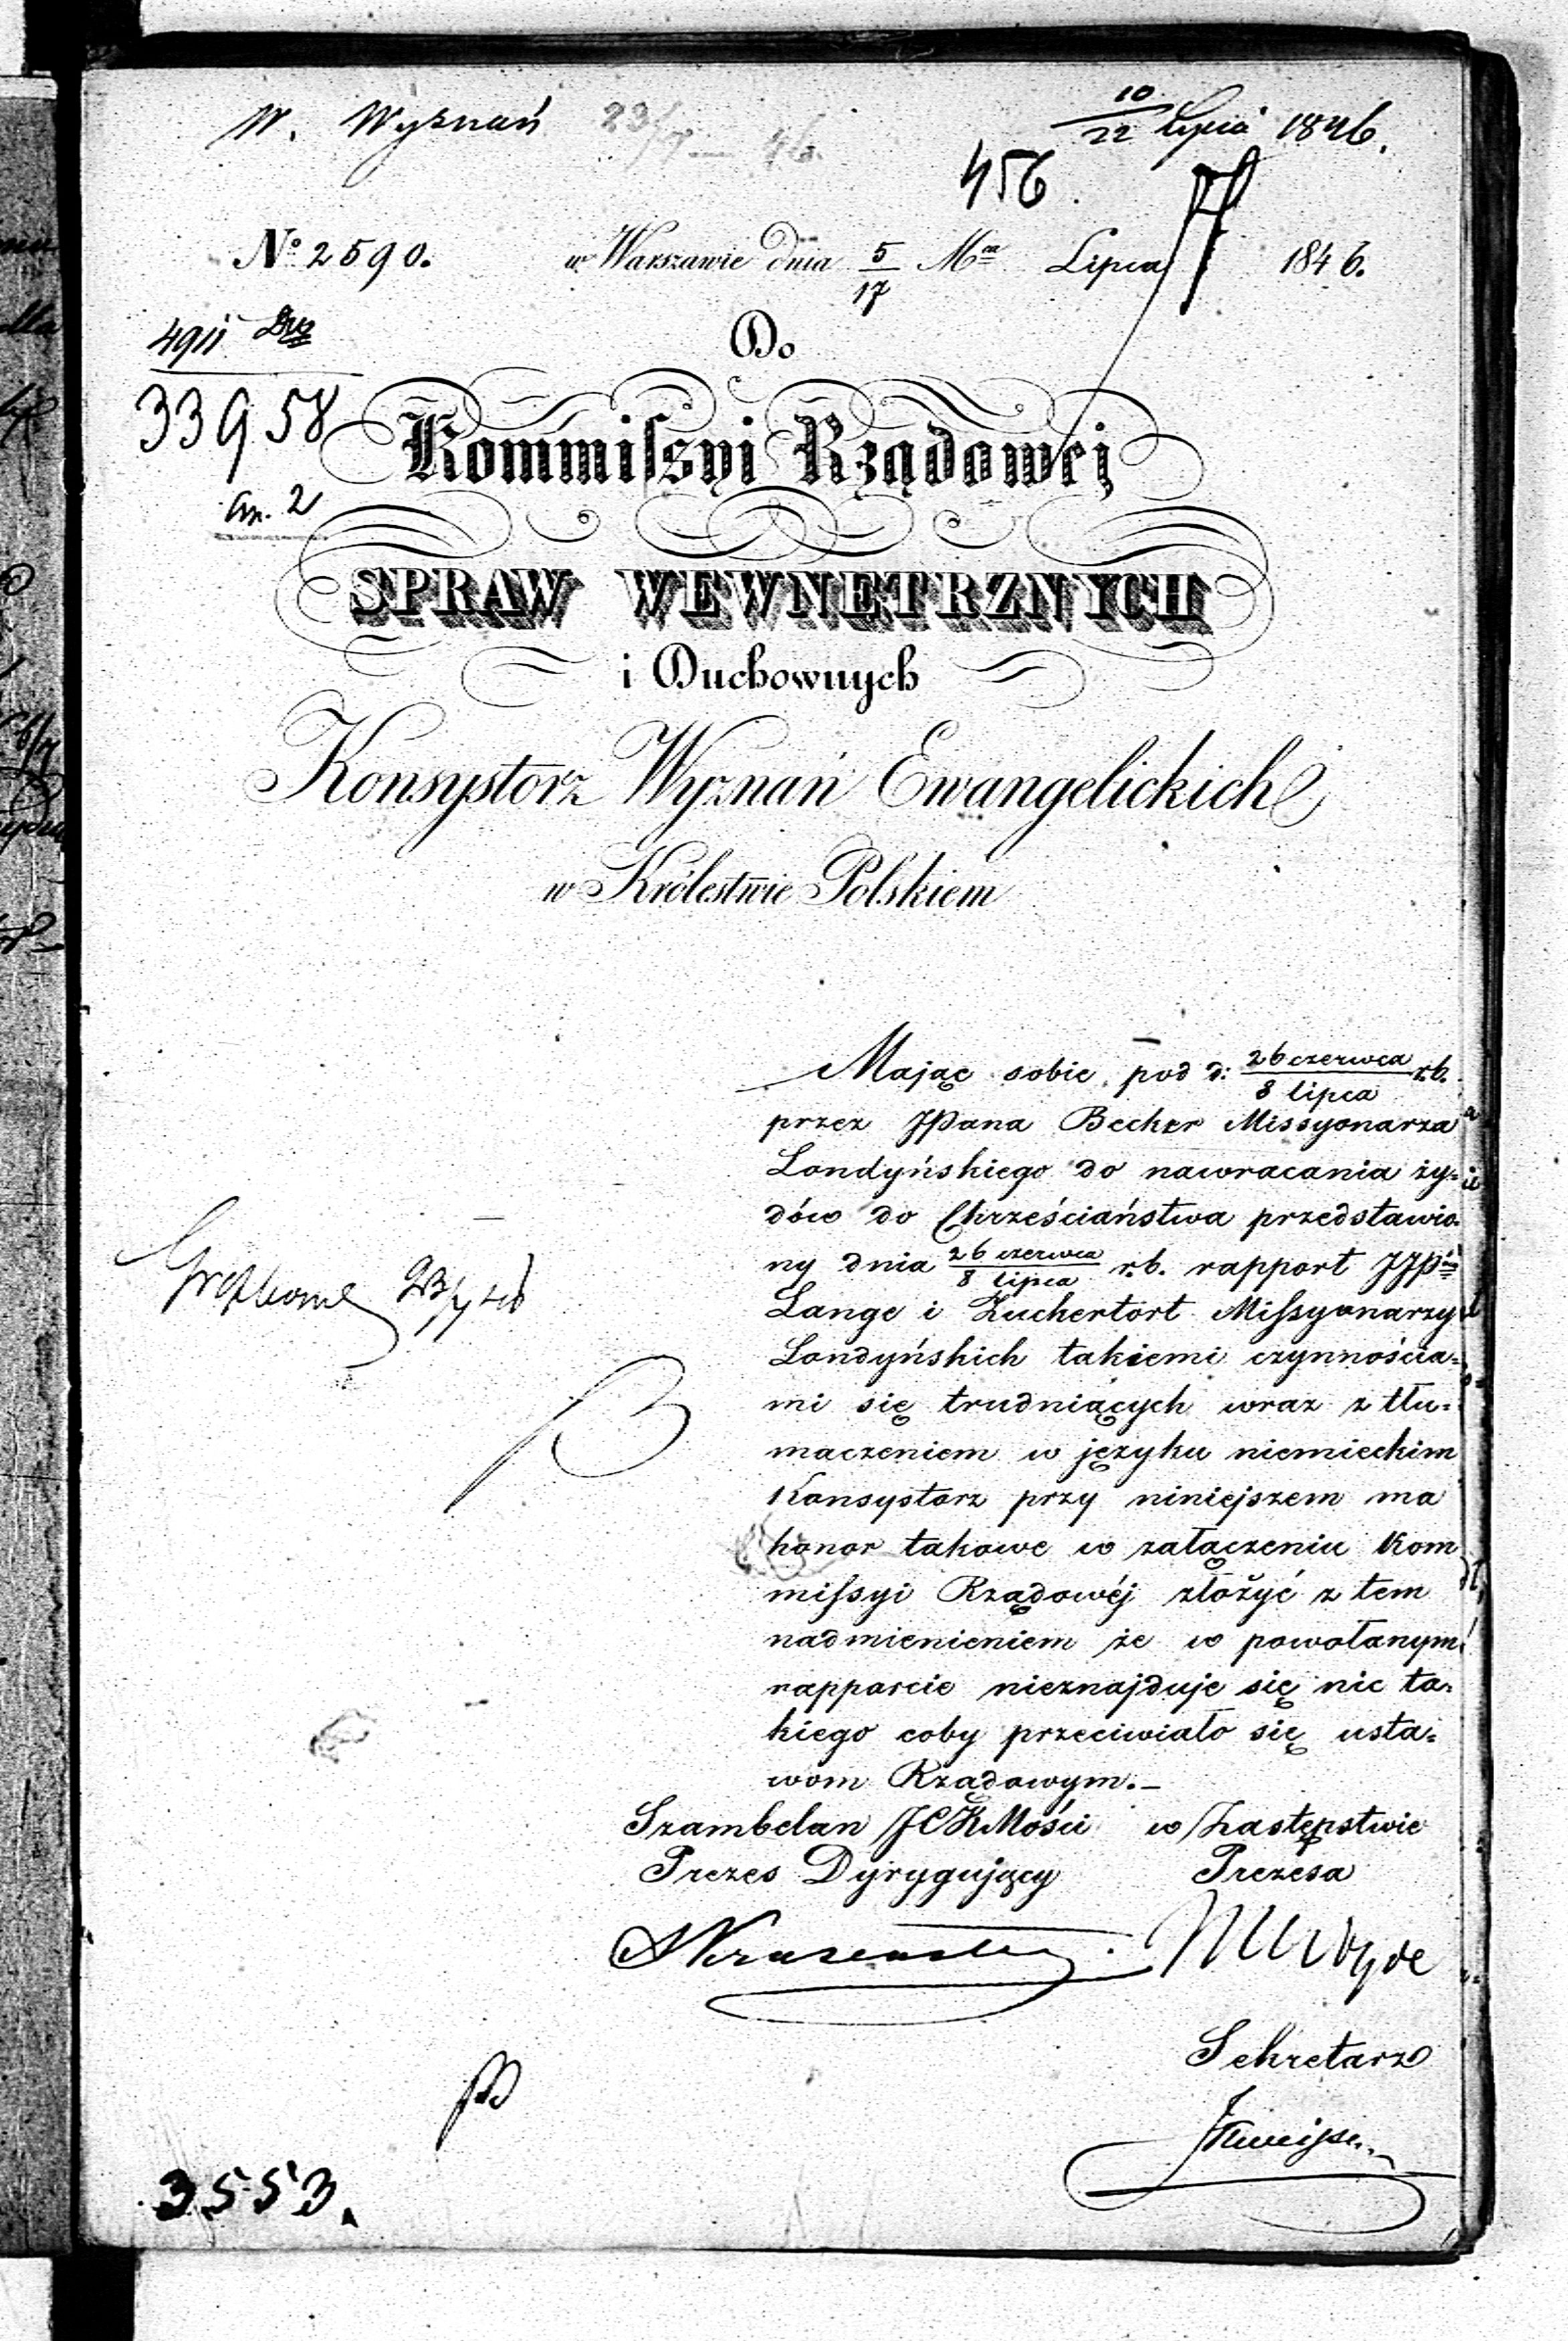 W. Wyznań 23/7 46.
10/22 Lipca 1846.
456.
No 2590. w Warszawie dnia 5/17 Mca Lipca 1846.
4911
33958
an. 2
Do
Kommissyi Rządowej
SPRAW WEWNĘTRZNYCH
i Duchownych
Konsystorz Wyznań Ewangelickich
w Królestwie Polskiem
Mając sobie pod d: 26 czerwca/8 lipca r.b.
przez JPana Becker Missyonarza
Londyńskiego do nawracania ży=
dów do Chrześciaństwa przedstawio=
ny dnia 26 czerwca/8 lipca r.b. rapport JJPnów
Lange i Zuckertort Missyonarzy
Londyńskich takiemi czynnościa=
mi się trudniących wraz z tłu=
maczeniem w języku niemieckim
Konsystorz przy niniejszem ma
honor takowe w załączeniu Kom
missyi Rządowéj złożyć z tem
nadmienieniem że w powołanym
rapporcie nieznajduje się nic ta=
kiego coby przeciwiało się usta=
wom Rządowym.—
23/7 46
Szambelan JCKMości w Zastępstwie
Prezes Dyrygujący Prezesa
Sekretarz
3553.